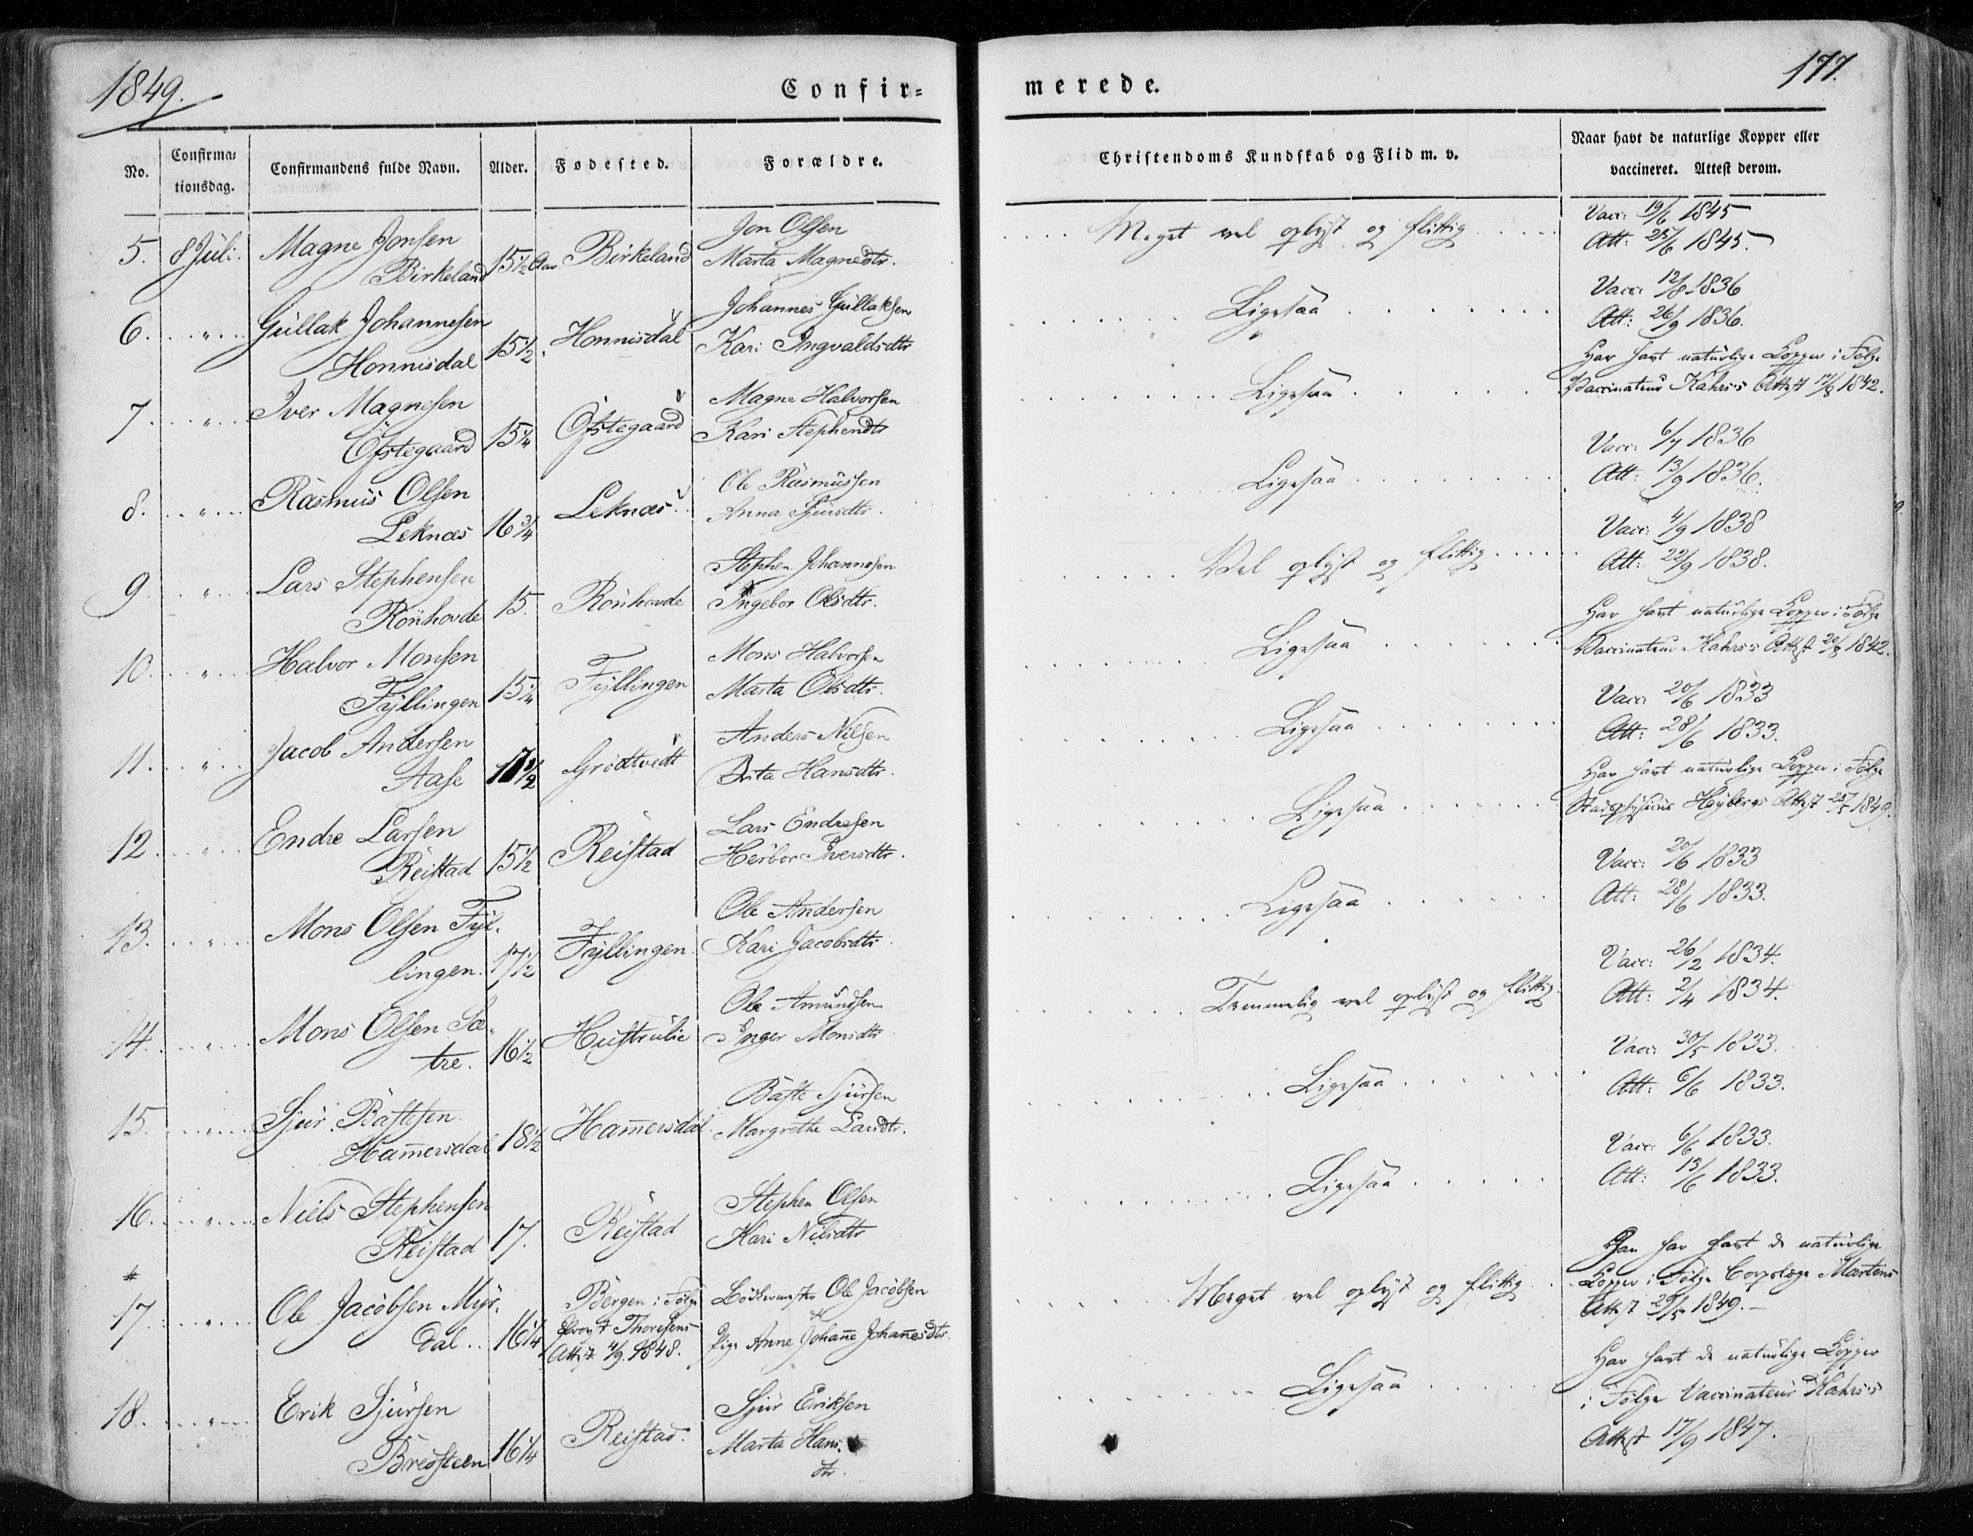 1849.
Confir=
merede.
177.
No.
Confirma=
tionsdag.
Confirmandens fulde Navn.
Alder.
Fødested.
Forældre.
Christendoms Kundskab og Flid m. v.
Naar havt de naturlige Kopper eller
vaccineret. Attest derom.
5. 8 Juli. Magne Jonsen
Birkeland
15 1/2 Aar
Birkeland
Jon Olsen
Marta Magnedtr.
Meget vel oplyst og flittig
Vacc: 19/6 1845
Att: 25/6 1845.
6. " Gullak Johannesen
Honnisdal
15 1/2.
Honnisdal
Johannes Gullaksen
Kari Ingvaldsdtr
Ligesaa
Vacc: 12/8 1836
Att: 26/9 1836.
7. " Iver Magnesen
Øfstegaard
15 1/4
Øfstegaard
Magne Halvorsen
Kari Stephendtr
Ligesaa
Har havt naturlige Kopper i Følge
Vaccinateur Kahrs's Attest 17/8 1842.
8. " Rasmus Olsen
Leknæs
16 3/4
Leknæs
Ole Rasmussen
Anna Sjursdtr.
Ligesaa
Vacc: 6/7 1836
Att: 13/9 1836.
9. " Lars Stephensen
Rönhovde
15.
Rönhovde
Stephen Johannesen
Ingebor Olsdtr.
Vel oplyst og flittig
Vacc: 4/9 1838
Att: 22/9 1838.
10. " Halvor Monsen
Fyllingen
15 1/4
Fyllingen
Mons Halvorsen
Marta Olsdtr.
Ligesaa
Har havt naturlige Kopper i Følge
Vaccinateur Kahrs's Attest 20/8 1842.
11. " Jacob Andersen
Aase
17 1/2
Grødtvedt
Anders Nilsen
Brita Hansdtr.
Ligesaa
Vacc: 20/6 1833
Att: 28/6 1833.
12. " Endre Larsen
Reistad
15 1/2
Reistad
Lars Endresen
Herbor Iversdtr.
Ligesaa
Har havt naturlige Kopper i Følge
Stadsphysicus Heibergs Attest 25/5 1849.
13. " Mons Olsen Fyl-
lingen.
17 1/2
Fyllingen
Ole Andersen
Kari Jacobsdtr.
Ligesaa
Vacc: 20/6 1833
Att: 28/6 1833.
14. " Mons Olsen Sæ-
tre.
16 1/2
Hustrulie
Ole Amundsen
Inger Monsdtr
Temmelig vel oplyst og flittig
Vacc: 26/2 1834.
Att: 2/4 1834.
15. " Sjur Bastesen
Hamersdal
18 1/2
Hamersdal
Baste Sjursen
Margrethe Larsdtr.
Ligesaa
Vacc: 30/5 1833.
Att: 6/6 1833.
16. " Niels Stephensen
Reistad
17.
Reistad
Stephen Olsen
Kari Nilsdtr
Ligesaa
Vacc: 6/6 1833.
Att: 13/6 1833.
17. " Ole Jacobsen Myr-
dal.
16 1/4
Bergen i Følge
Provst Thoresens
Attest 4/9 1848.
Bødkermester Ole Jacobsen
Pige Anne Johane Johanesdtr.
Meget vel oplyst og flittig
Han har havt de naturlige
Kopper i Følge Corpslæge Martens
Attest 29/5 1849.
18. " Erik Sjursen
Bredsteen
16 1/4
Reistad.
Sjur Eriksen
Marta Hans-
dtr.
Ligesaa
Har havt de naturlige Kopper
i Følge Vaccinateur Kahrs's
Attest 17/9 1847.